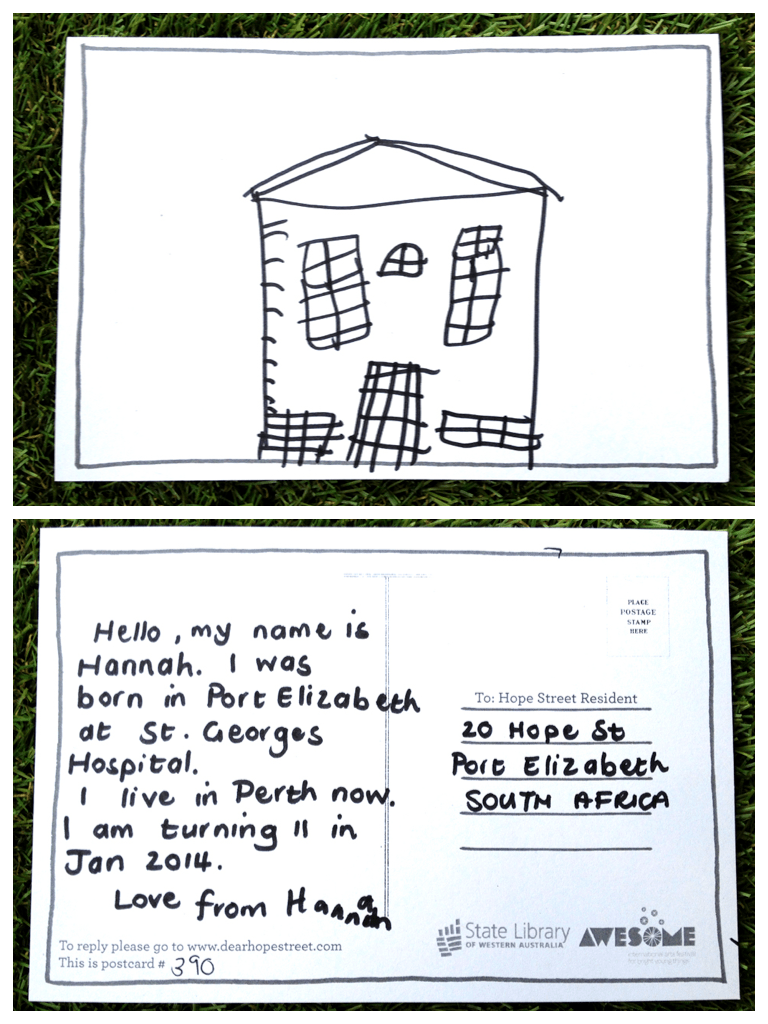 Hello, my name is
Hannah. I was
born in Port Elizabeth
at St. Georges
Hospital.
I live in Perth now.
I am turning 11 in
Jan 2014.
Love from Hannah
To reply please go to www.dearhopestreet.com
This is postcard # 390
PLACE
POSTAGE
STAMP
HERE
To: Hope Street Resident
20 Hope St
Port Elizabeth
SOUTH AFRICA
State Library
OF WESTERN AUSTRALIA
AWESOME
international arts festival
for bright young things